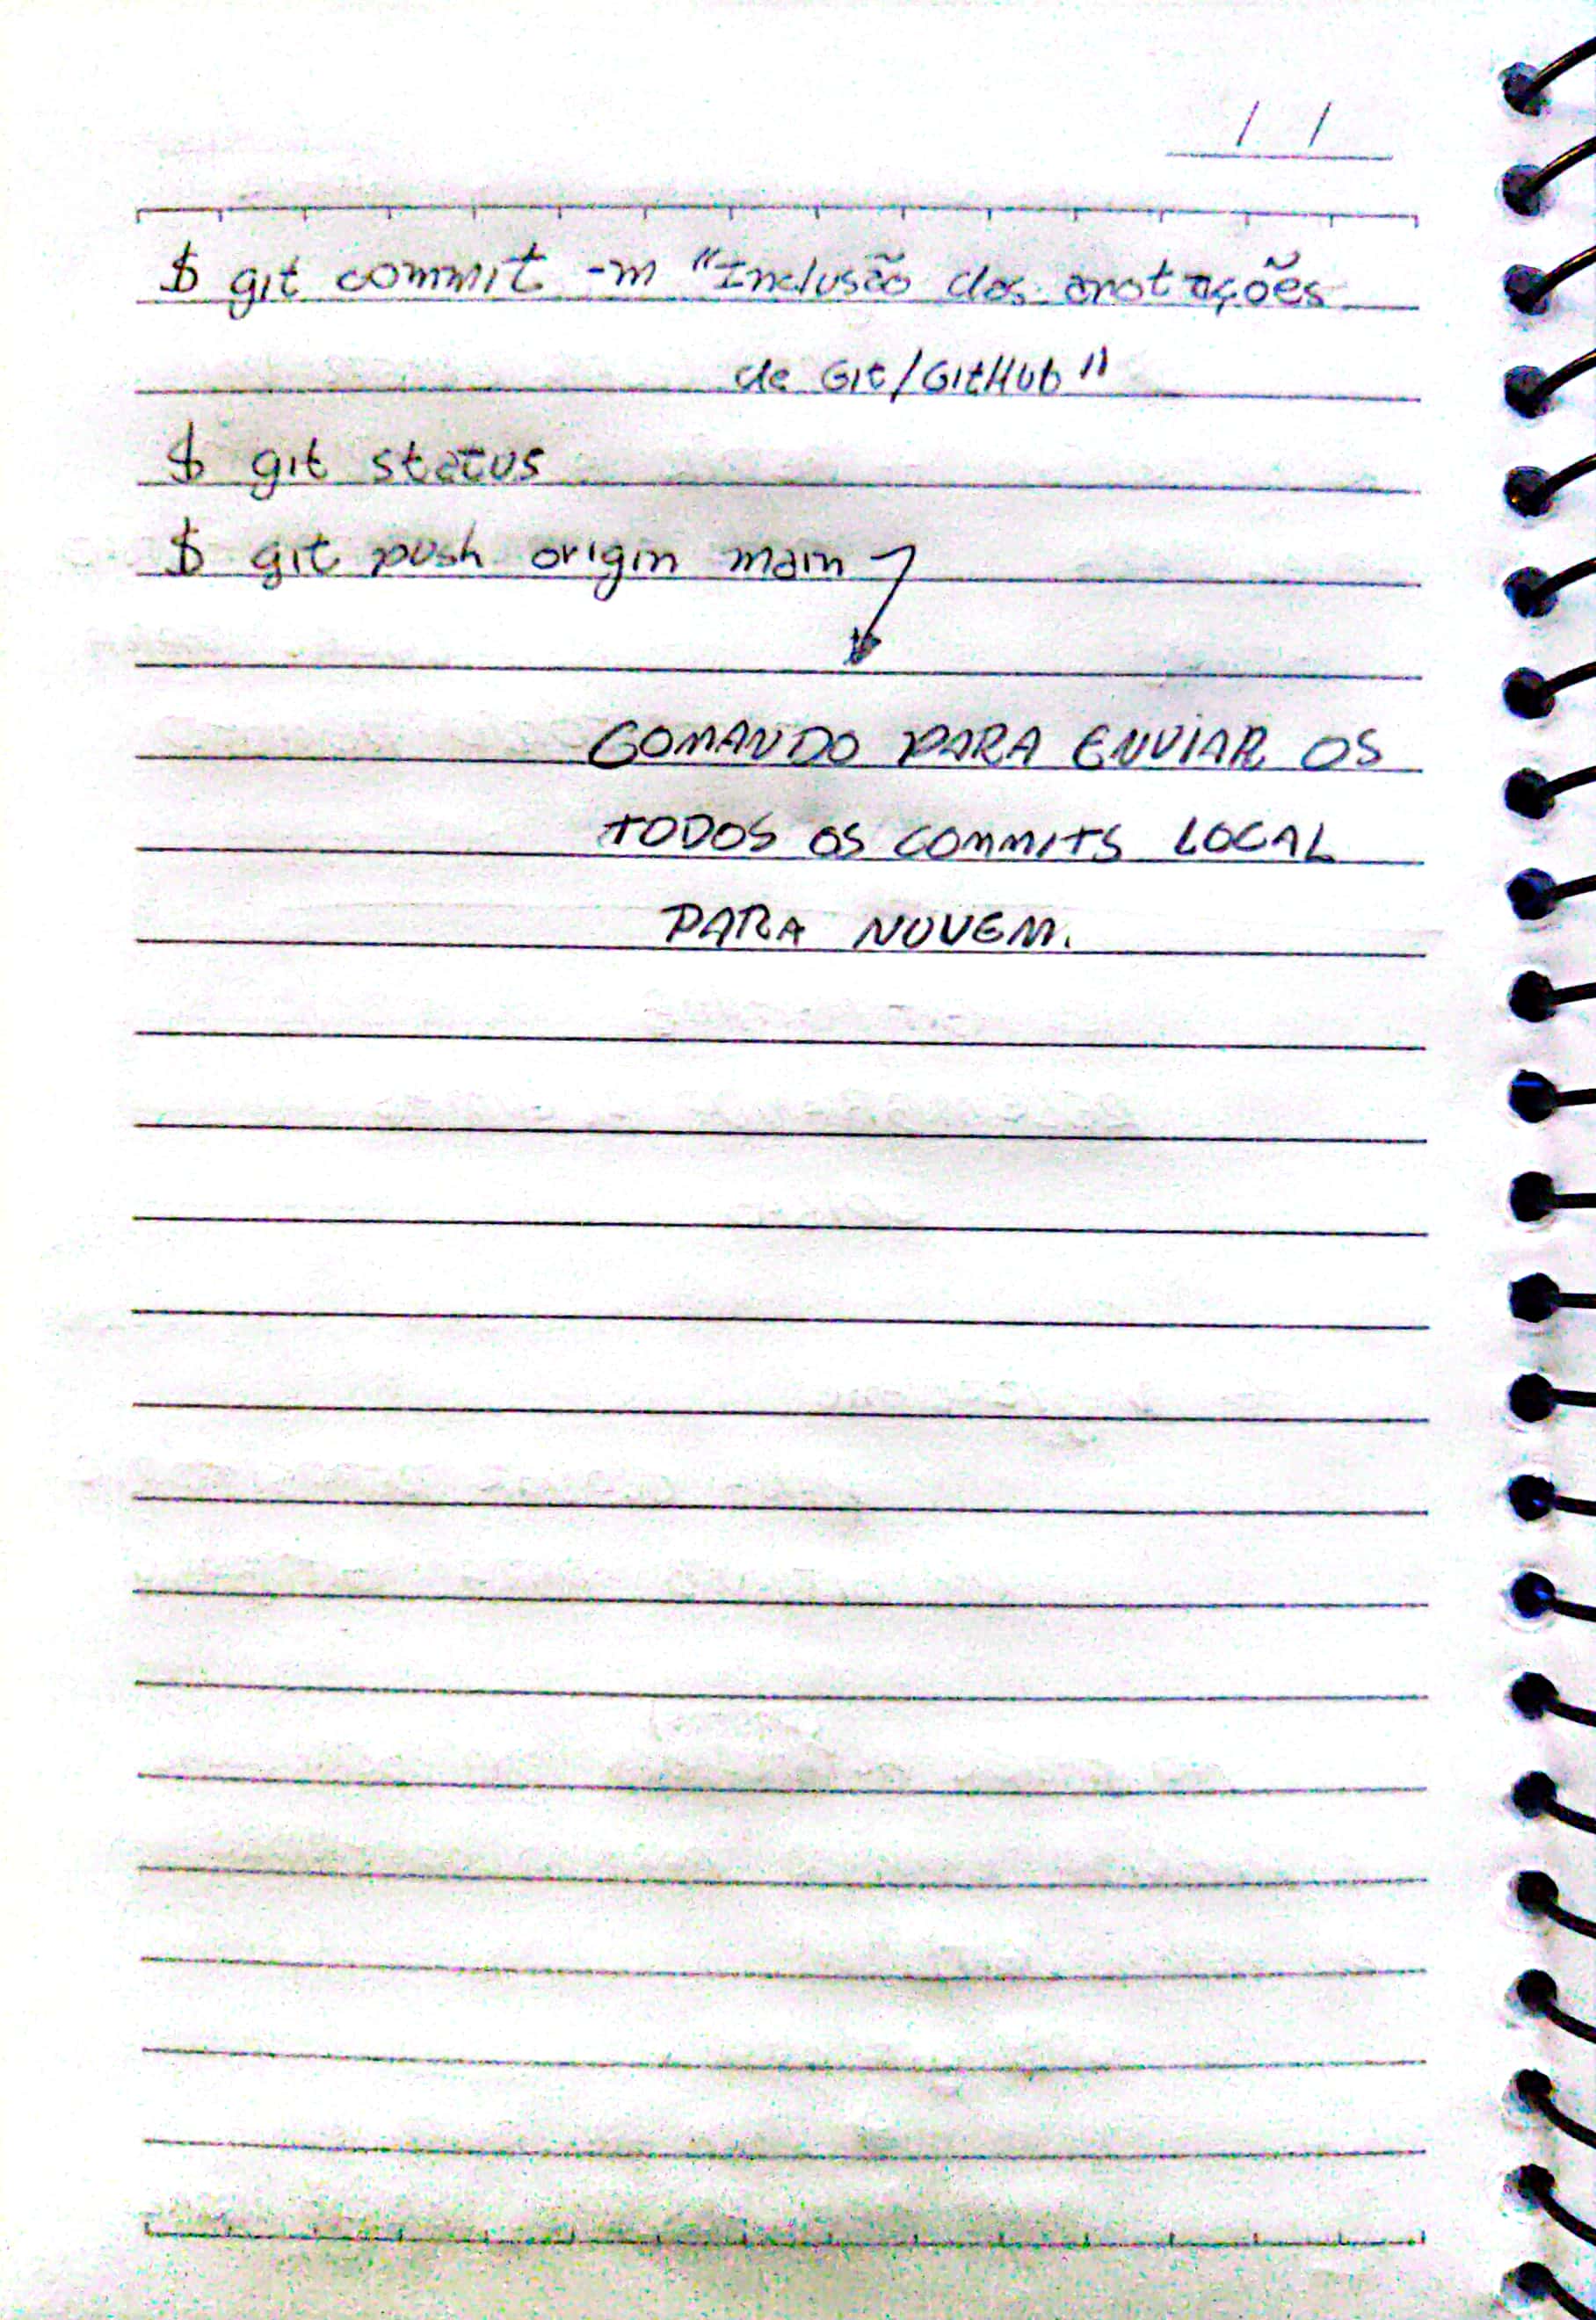 / /
$ git commit -m "Inclusão das anotações
de Git/GitHub"
$ git status
$ git push origin main
COMANDO PARA ENVIAR OS
TODOS OS COMMITS LOCAL
PARA NUVEM.